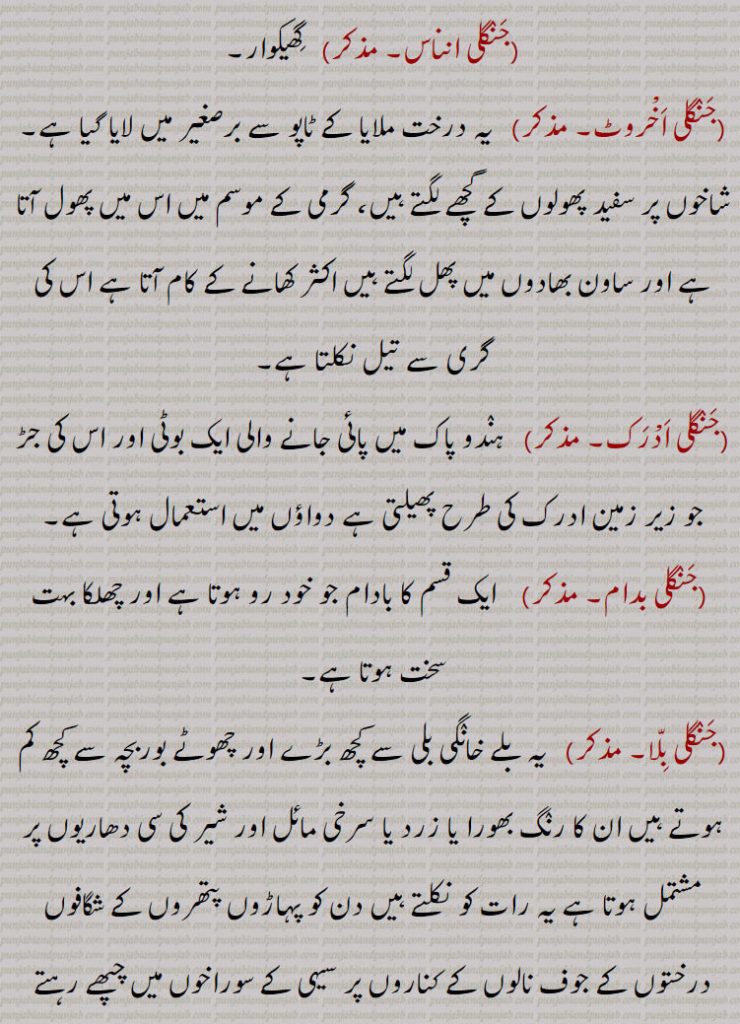 (جَنْگلی انناس۔ مذکر) گِھیکوار۔
(جَنْگلی اَخْروٹ۔ مذکر) یہ درخت ملایا کے ٹاپو سے برصغیر میں لایا گیا ہے۔
شاخوں پر سفید پھولوں کے گچھے لگتے ہیں، گرمی کے موسم میں اس میں پھول آتا
ہے اور ساون بھادوں میں پھل لگتے ہیں اکثر کھانے کے کام آتا ہے اس کی
گری سے تیل نکلتا ہے۔
(جَنْگلی اَدْرَک۔ مذکر) ہنْدو پاک میں پائی جانے والی ایک بوٹی اور اس کی جڑ
جو زیر زمین ادرک کی طرح پھیلتی ہے دواؤں میں استعمال ہوتی ہے۔
(جَنْگلی بدام۔ مذکر) ایک قسم کا بادام جو خود رو ہوتا ہے اور چھلکا بہت
سخت ہوتا ہے۔
(جَنْگلی بِلّا۔ مذکر) یہ بلے خانْگی بلی سے کچھ بڑے اور چھوٹے بوربچہ سے کچھ کم
ہوتے ہیں ان کا رنْگ بھورا یا زرد یا سرخی مائل اور شیر کی سی دھاریوں پر
مشتمل ہوتا ہے یہ رات کو نکلتے ہیں دن کو پہاڑوں پتھروں کے شگافوں
درختوں کے جوف نالوں کے کناروں پر سیہی کے سوراخوں میں چھپے رہتے